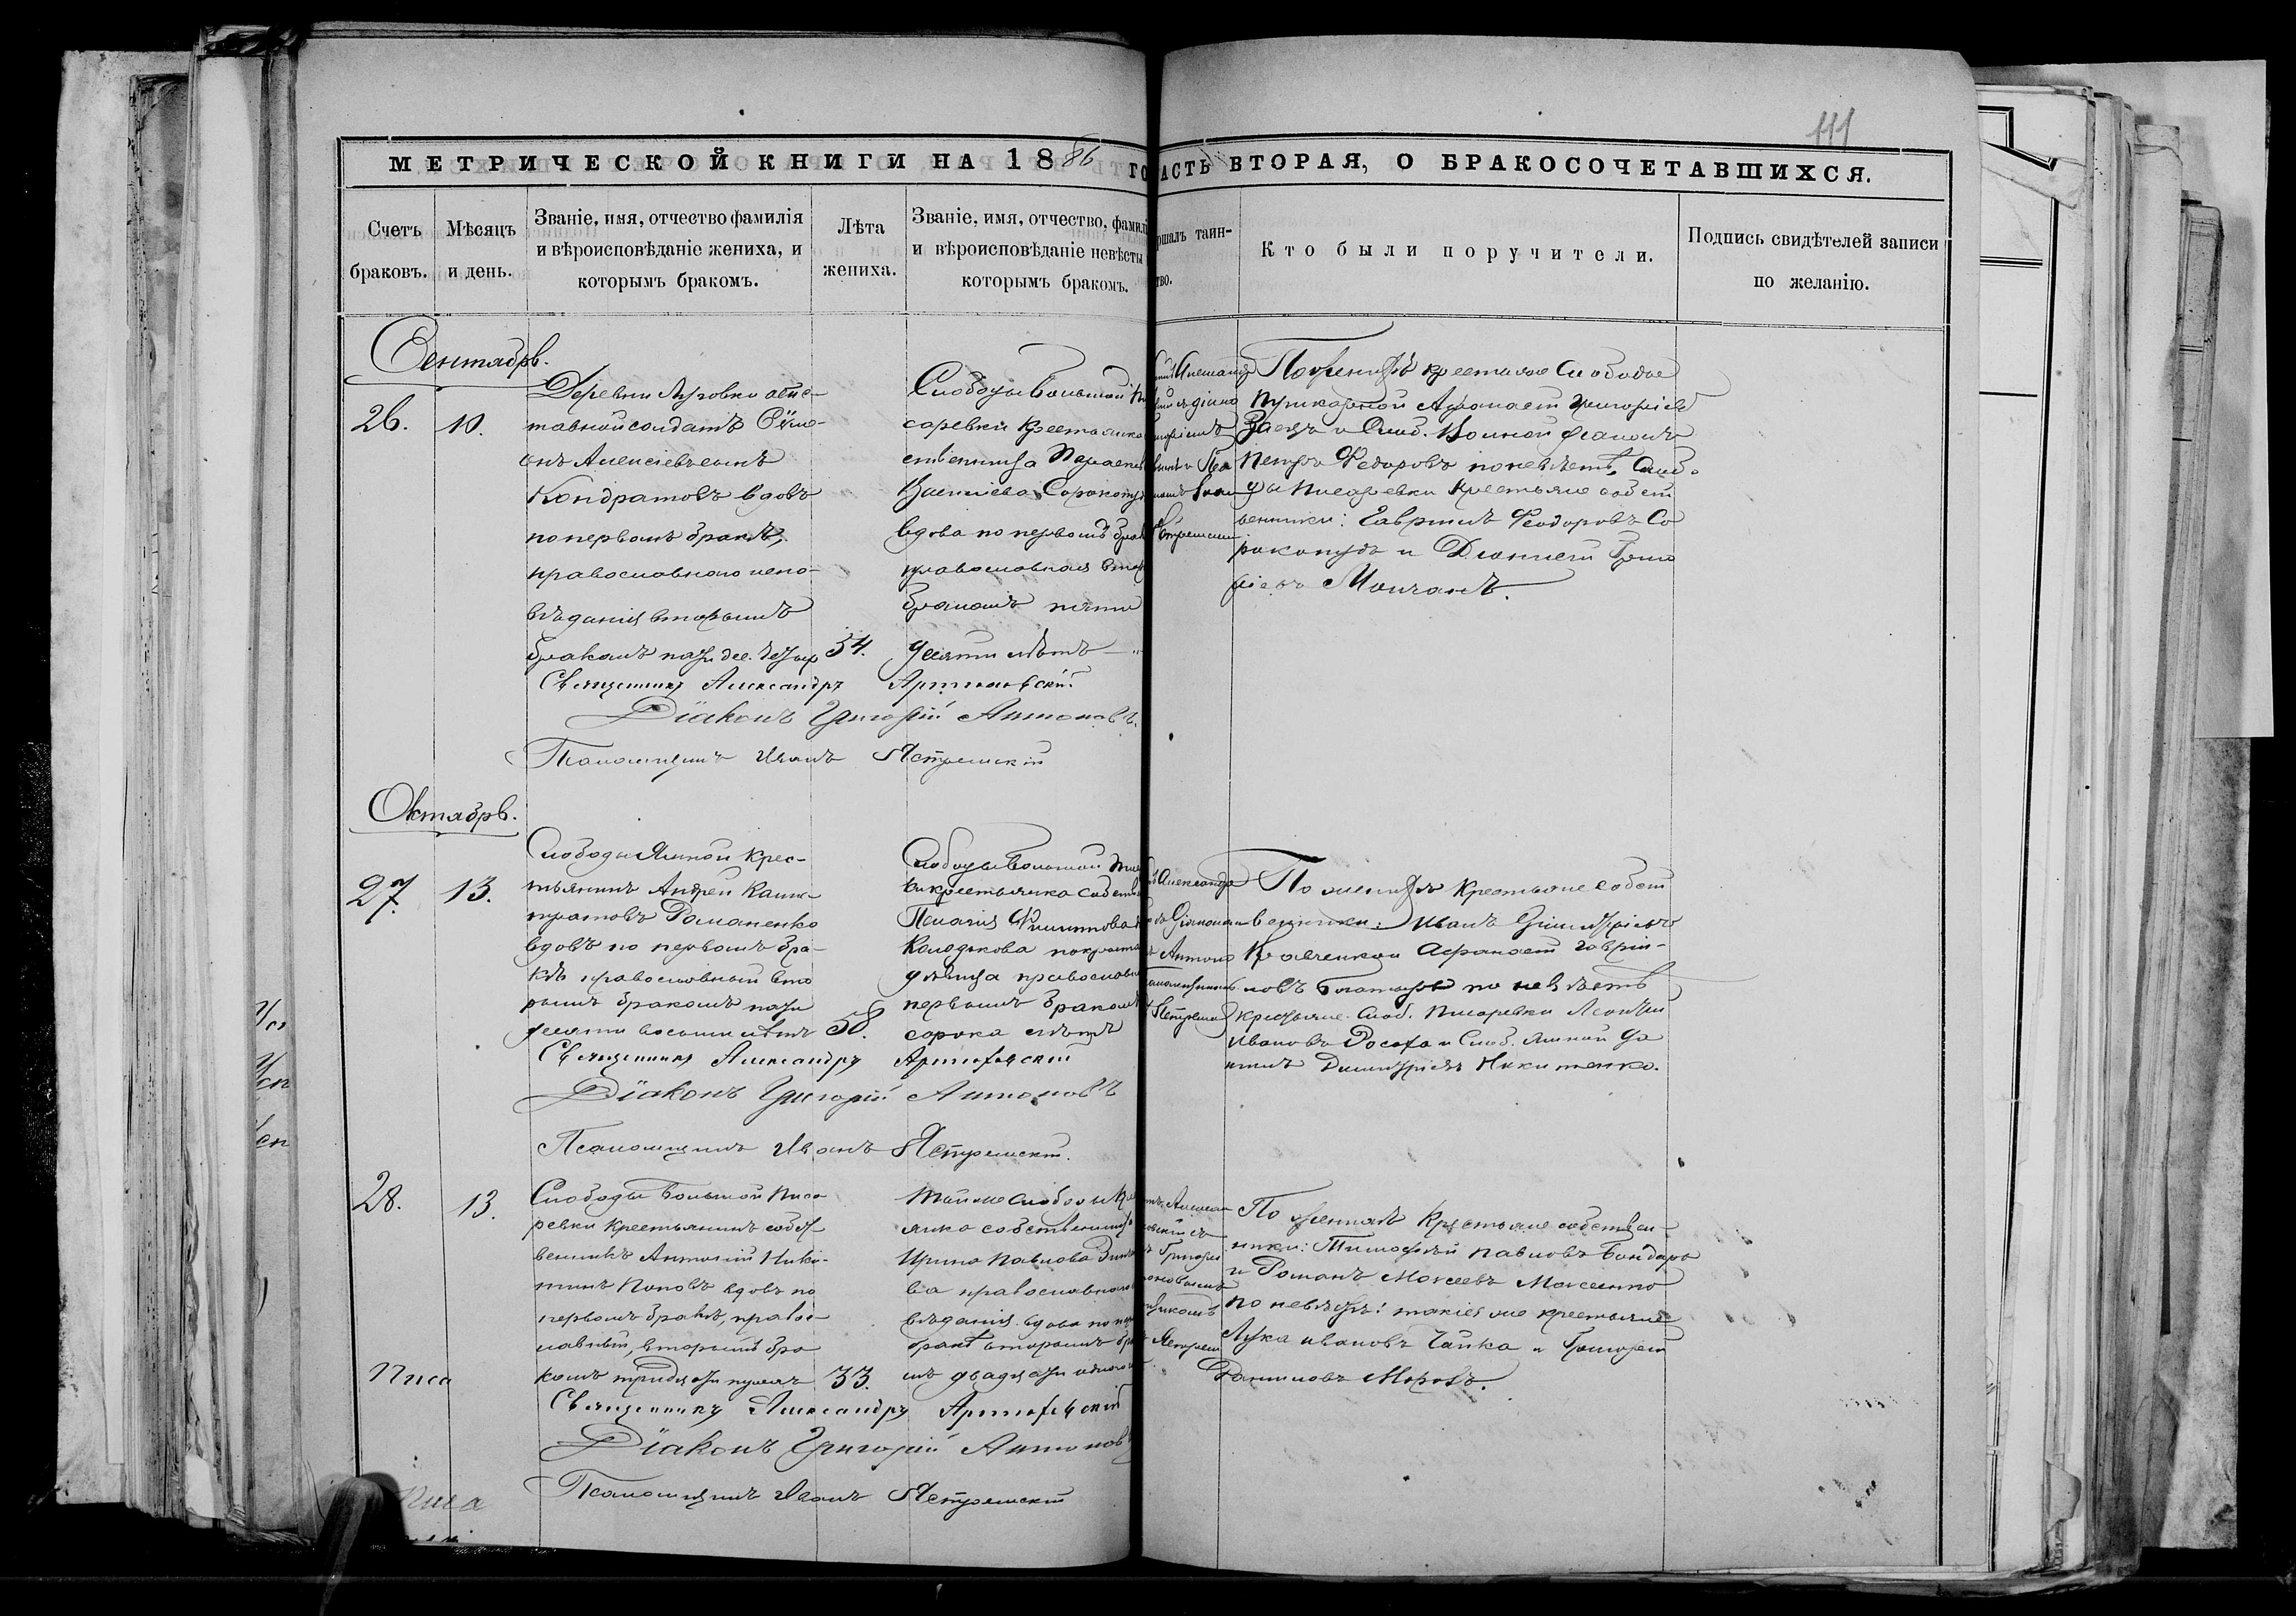 111
МЕТРИЧЕСКОЙ КНИГИ НА 1886 ГО
АСТЬ ВТОРАЯ, О БРАКОСОЧЕТАВШИХСЯ.
Счетъ браковъ.
Мѣсяцъ и день.
Званіе, имя, отчество фамилія
и вѣроисповѣданіе жениха, и
которымъ бракомъ.
Лѣта
жениха.
Званіе, имя, отчество, фамилі
и вѣроисповѣданіе невѣсты
которымъ бракомъ.
ршалъ таин-
тво.
Кто были поручители.
Подпись свидѣтелей записи
по желанію.
Сентябрь.
26.
10.
Деревни Луговки отс-
тавной солдатъ Сѵме-
онъ Алексіевъ сынъ
Кондратовъ вдовъ
по первомъ бракѣ,
православнаго испо-
вѣданія вторымъ
бракомъ
54.
Слободы Большой Пи
саревки крестьянка
ственница Параскев
Василіева Сорокопуд
вдова по первомъ бра
православная втор
бракомъ пяти
десяти лѣтъ
Александ
Григоріемъ
Ястремски
По женихѣ крестьяне Слободы
Пушкарной Афанасій Григоріевъ
Заецъ и Слоб.
Петръ Федоровъ по невѣстѣ, Слоб.
ды Писаревки крестьяне собст
венники: Гавріилъ Феодоровъ Со
рокопудъ и Діонисій Григо
ріевъ Молчанъ.
Священникъ Александръ Артюховскій.
Діаконъ Григорій Антоновъ.
Псаломщикъ Иванъ Ястремскій
Октябрь.
27.
13.
Слободы Ямной крес-
тьянинъ Андрей Калис-
тратовъ Романенко
вдовъ по первомъ бра-
кѣ православный вто
рымъ бракомъ пяти
десяти восьми лѣтъ
58.
Слободы Большой Пис
крестьянка собств
Пелагія Филиппова
Колодкова
дѣвица православн
первымъ бракомъ
сорока лѣтъ
Александр
діакономъ
Антоно
псаломщикомъ
Ястремс
По женихѣ крестьяне собст
венники: Иванъ Димитріевъ
Кравченко и Афанасій Гаврі-
ловъ по невѣстѣ
крестьяне Слоб. Писаревки Леонтій
Ивановъ и Слоб. Ямной Да
ніилъ Димитріевъ Никитенко.
Священникъ Александръ Артюховскій
Діаконъ Григорій Антоновъ
Псаломщикъ Иванъ Ястремскій.
28.
13.
Слободы Большой Писа
ревки крестьянинъ собст
венникъ Антоній Ники-
тинъ Поповъ вдовъ по
первомъ бракѣ, правос-
лавный, вторымъ бра
комъ тридцати трехъ
33.
Той же слободы кр
янка собственница
Ирина Павлова
ва православнаго
вѣданія вдова по пер
бракѣ вторымъ бра
мъ двадцати
Алексан
Григорі
Ястрем
По женихѣ крестьяне собствен-
ники: Тимофей Павловъ Бондарь
и Романъ Моисеевъ Моисеенко
по невѣстѣ: такіе же крестьяне
Лука Ивановъ Чайка и Григорій
Даниловъ Морозъ.
Писа
Священникъ Александръ Артюховскій
Діаконъ Григорій Антоновъ
Псаломщикъ Иванъ Ястремскій
Писа